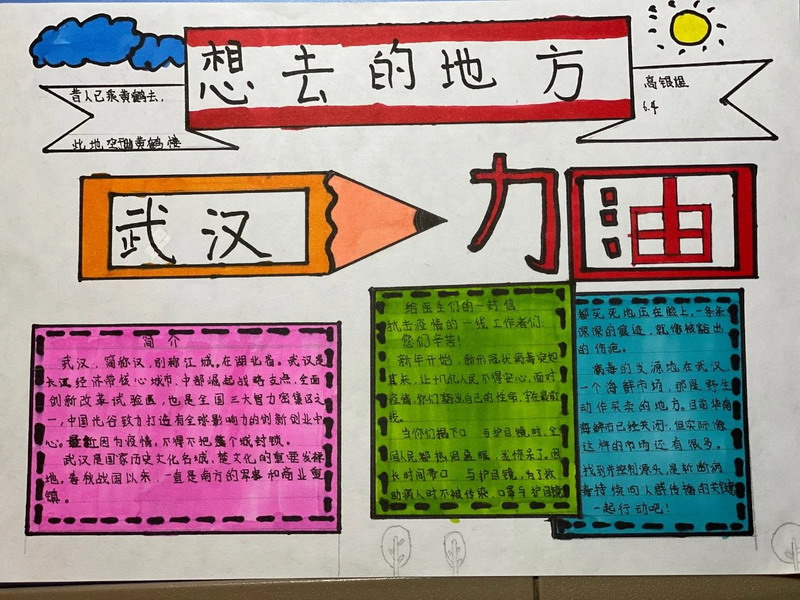 想去的地方
昔人已乘黄鹤去，
此地空余黄鹤楼
高银
6.4
武汉
加油
简介
武汉，简称汉，别称江城，在湖北省。武汉是
长江经济带核心城市、中部崛起战略支点、全面
创新改革试验区，也是全国三大智力密集区之
一，中国光谷致力打造有全球影响力的创新创业中
心。最新因为疫情，不得不把整个城封锁。
武汉是国家历史文化名城，楚文化的重要发祥
地。春秋战国以来，一直是南方的军事和商业重
镇。
给医生们的一封信
抗击疫情的一线工作者们：
您们辛苦！
新年开始，新形冠状病毒突如
其来，让十几亿人民不得安心，面对
疫情，你们豁出自己的性命，守在最前
线。
当你们摘下口 与护目镜时，全
国人民都热泪盈眶，光惊呆了，因
长时间带口 与护目镜，为了救
助病人时不被传染，口罩与护目镜
都死死地压在脸上，一条条
深深的痕迹，就像被
的伤疤。
病毒的发源地在武汉
一个海鲜市场，那是野生
动作买卖的地方。目前华南
海鲜市已经关闭，但实际像
这样的市场还有很多。
找到并控制源头，是斩断病
毒持续向人群传播的关键
一起行动吧！